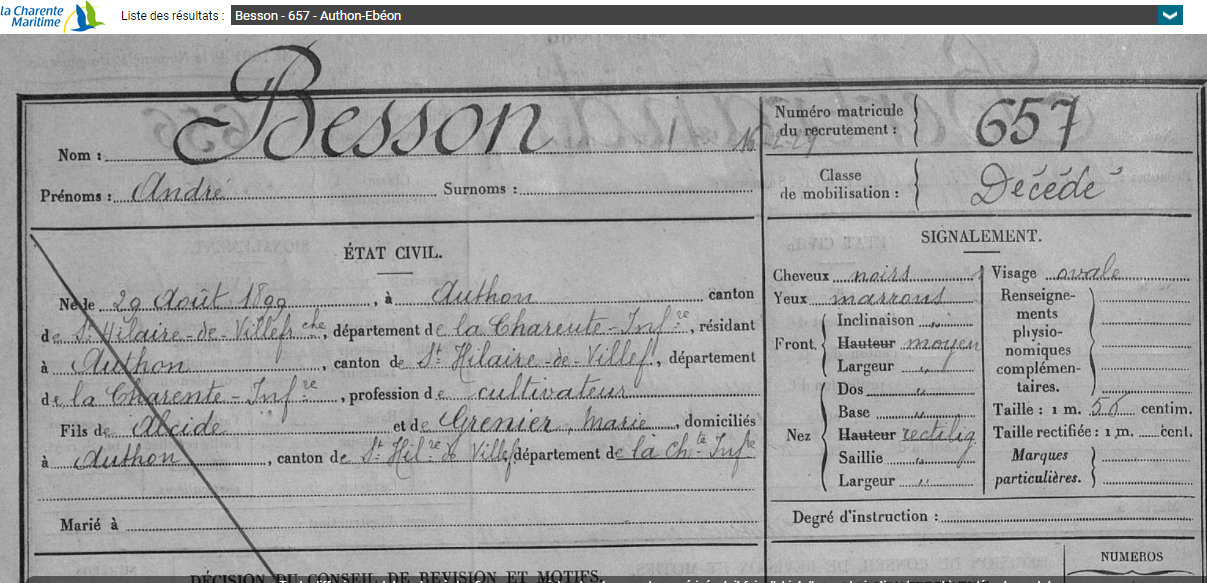 la Charente
Maritime
Liste des résultats : Besson - 657 - Authon-Ebéon
Nom : Besson
Prénoms : André Surnoms :
Numéro matricule
du recrutement : 657
Classe
de mobilisation : Décédé
ÉTAT CIVIL.
Né le 29 Août 1899, à Authon canton
de St Hilaire-de-Villefrche, département de la Charente-Infre, résidant
à Authon, canton de St Hilaire-de-Villef, département
de la Charente-Infre, profession de cultivateur
Fils de Alcide et de Grenier, Marie, domiciliés
à Authon, canton de St Hilre de Villef département de la Chte Infre
Marié à
SIGNALEMENT.
Cheveux noirs
Yeux marrons
Front. Inclinaison "
Hauteur moyen
Largeur "
Nez Dos "
Base "
Hauteur rectilig
Saillie "
Largeur "
Visage ovale
Renseigne-
ments
physio-
nomiques
complémen-
taires.
Taille : 1 m. 56 centim.
Taille rectifiée : 1 m. cent.
Marques
particulières.
Degré d'instruction :
DÉCISION DU CONSEIL DE REVISION ET MOTIFS.
NUMEROS